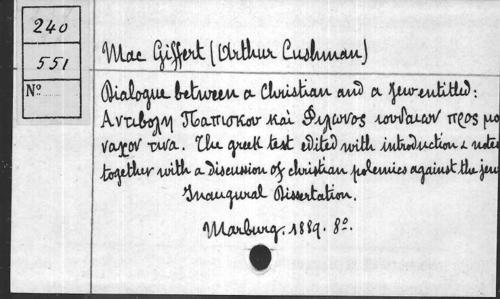 240
551
Nº
Mac Giffert (Arthur Cushman)
Dialogue between a Christian and a Jew entitled:
Αντιβολη Παπισκου καὶ Φιλωνος ιουδαιων προς μο
ναχον τινα. The greek text edited with introduction & notes
together with a discussion of christian polemics against the jew
Inaugural Dissertation.
Marburg. 1889. 8º.